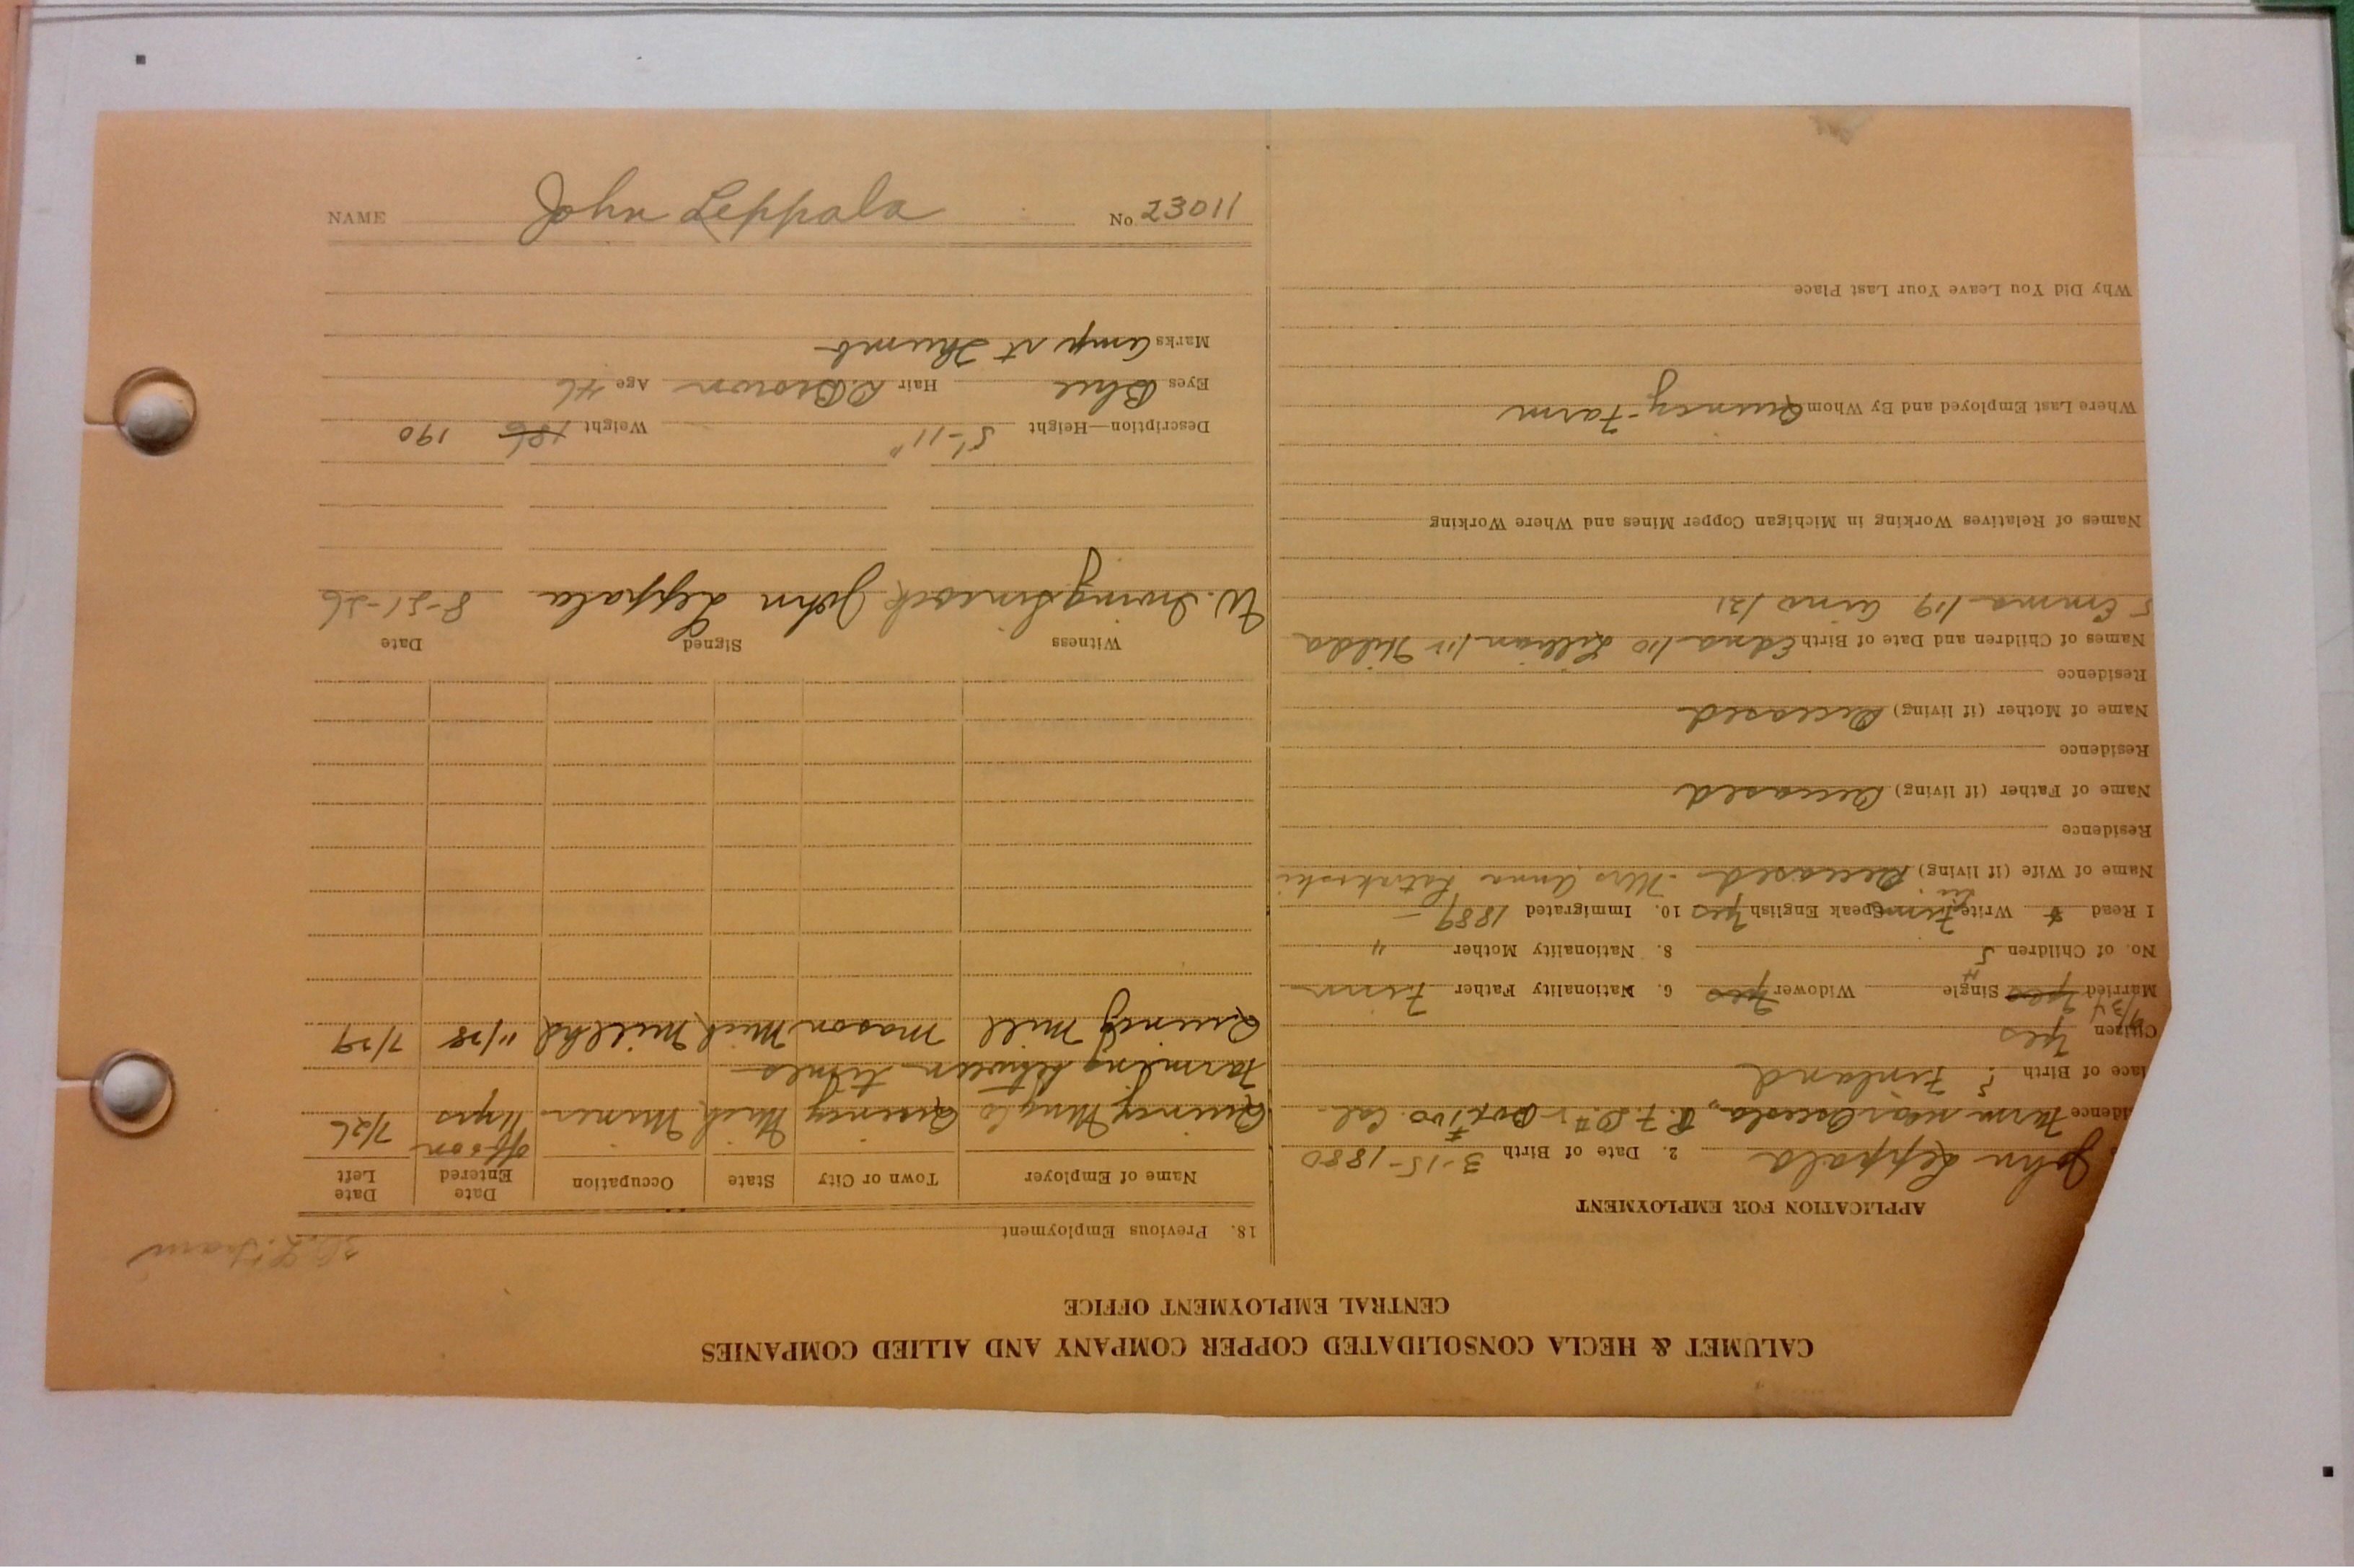 NAME John Leppala No. 23011
CALUMET & HECLA CONSOLIDATED COPPER COMPANY AND ALLIED COMPANIES
CENTRAL EMPLOYMENT OFFICE
APPLICATION FOR EMPLOYMENT
John Leppala 2. Date of Birth 3-15-1880
idence Farm near Osceola, R.F.D. #1 Box 100 Cal.
lace of Birth Finland
Citizen yes
Married yes Single Widower yes 6. Nationality Father Finn
No. of Children 5 8. Nationality Mother "
I Read Write Finn Speak English yes 10. Immigrated 1889
Name of Wife (if living) Deceased - Mrs Anna
Residence
Name of Father (if living) Deceased
Residence
Name of Mother (if living) Deceased
Residence
Names of Children and Date of Birth Edna /10 Lillian /12 Hilda
Emma /19 Aino /21
Names of Relatives Working in Michigan Copper Mines and Where Working
Where Last Employed and By Whom Quincy - Farm
Why Did You Leave Your Last Place
18. Previous Employment
Name of Employer Town or City State Occupation Date Entered Date Left
Quincy Mng Co Quincy Mich Miner off & on 11 yrs 7/26
Farming between times
Quincy Mill Mason Mich Millhd 11/28 7/29
Witness Signed Date
W. Irving John Leppala 8-21-26
Description—Height 5'-11" Weight 186 190
Eyes Blue Hair D. Brown Age 46
Marks Amp st Thumb